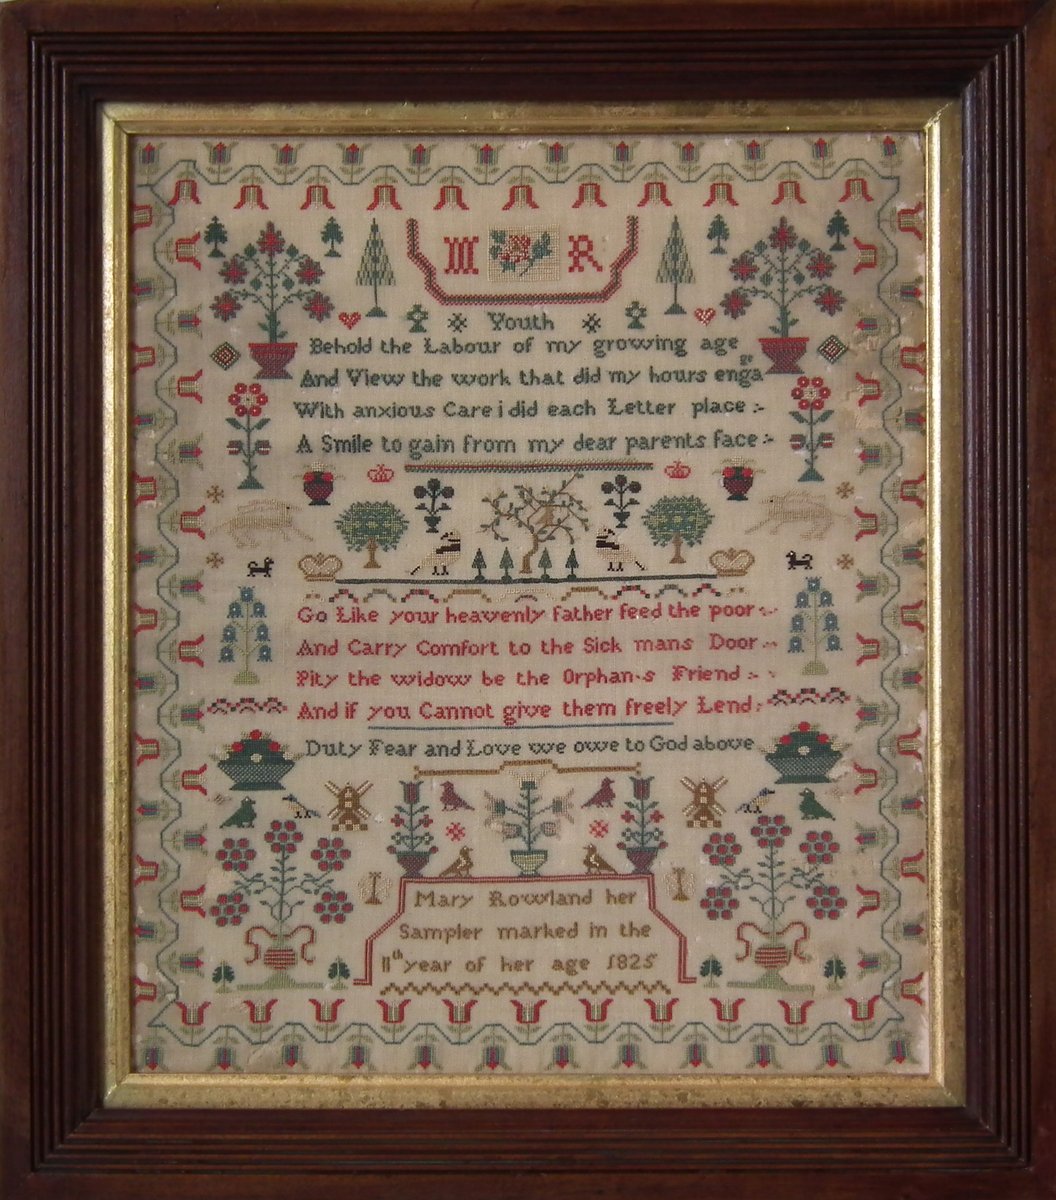 M R
Youth
Behold the Labour of my growing age
And View the work that did my hours engage
With anxious Care i did each Letter place :-
A Smile to gain from my dear parents face :-
Go Like your heavenly father feed the poor :-
And Carry Comfort to the Sick mans Door :-
Pity the widow be the Orphan·s Friend :-
And if you Cannot give them freely Lend :
Duty Fear and Love we owe to God above
Mary Rowland her
Sampler marked in the
11th year of her age 1825